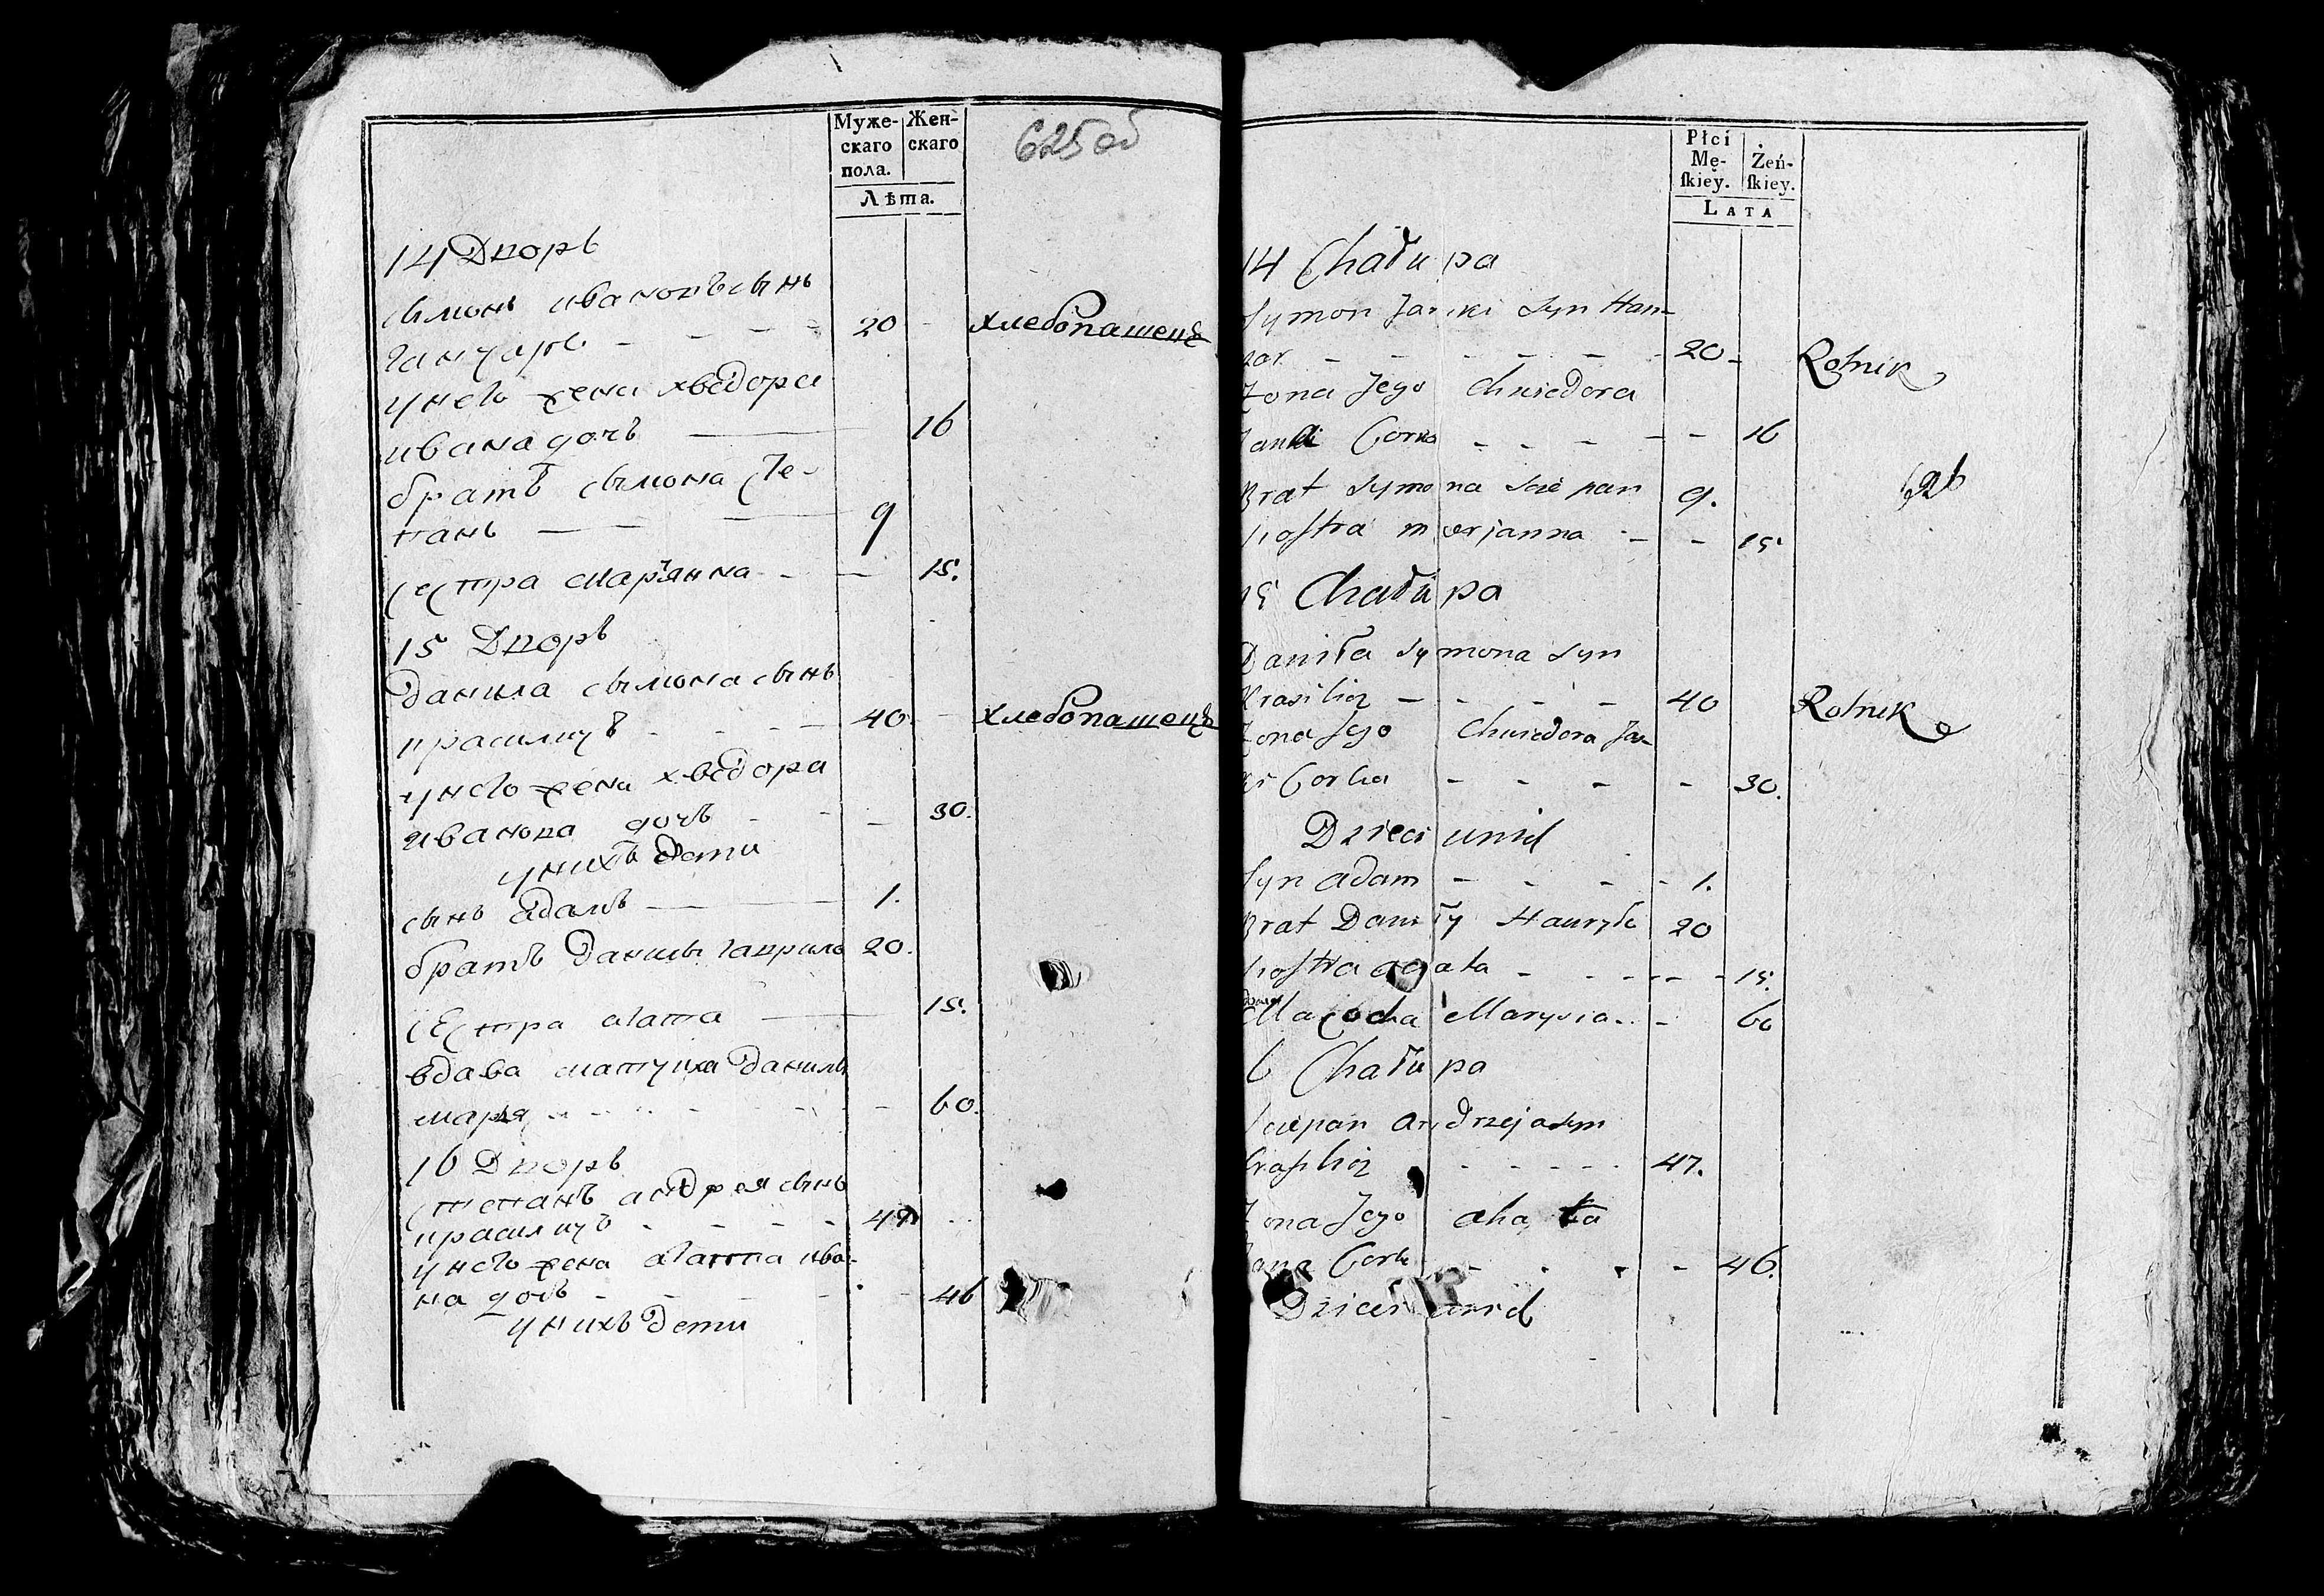 Муже-
скаго
пола.
Жен-
скаго
Лѣта.
625об
14 Дворъ
сымонъ ивановъ сынъ
ганчаръ - - - 20 - хлебопашецъ
унего жена хведора
ивана дочъ — 16
братъ сымона Сте-
панъ — — 9
сестра марьянна - — 15.
15 Дворъ
Данила сымона сынъ
красилицъ - - - 40. - хлебопашецъ
унего жена хведора
иванова дочъ - - — 30.
унихъ дети
сынъ адамъ — — 1.
братъ данилы гаврило 20.
сестра агата — 15.
вдава матушка данилы
марья - - - - - 60.
16 Дворъ
степанъ андрея сынъ
красилицъ - - - - 47
унего жена агатта ива-
на дочъ - - - - 46
унихъ дети
Płci
Mę-
ſkiey.
Żeń-
ſkiey.
LATA
14 Chałupa
Symon Janki syn Han-
zar. - - - - - - 20 - Rolnik
Zona Jego Chwiedora
Janki Corka - - - - - 16
Brat Symona Sciepan 9.
siostra marjanna - - 15.
626
15 Chałupa
Daniła Symona syn
Krasilicz - - - - 40 Rolnik
Zona Jego Chwiedora Jan-
ki Corka - - - - 30.
Dzieci unich
Syn adam - - - - 1.
Brat Daniły Hauryło 20
siostra agata - - - - - 15.
Macocha Marysia - - 60
6 Chałupa
Sciepan andrzeja syn
Krasilicz - - - - - 47.
Zona Jego aha ta
Jana Corka - - - - 46.
Dzieci unich